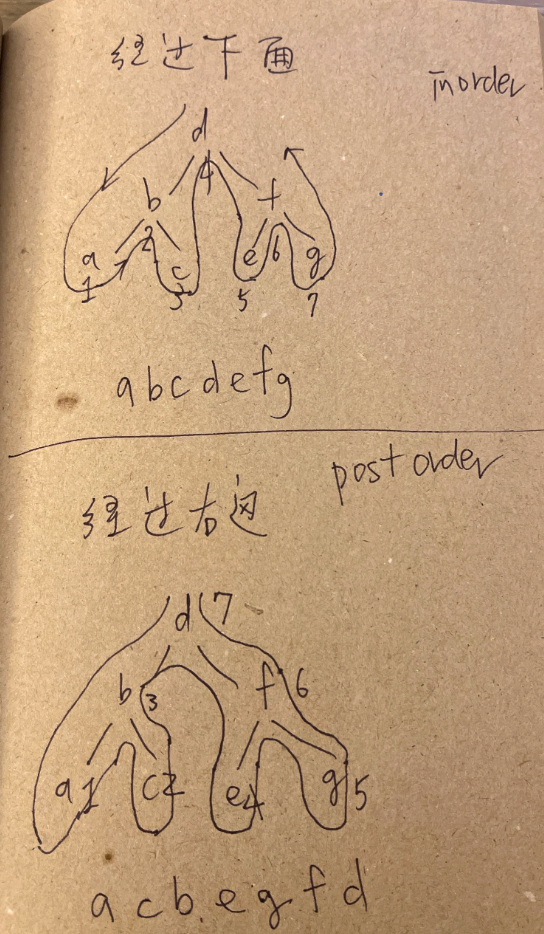 经过下面
inorder
d
4
b f
2
a c e 6 g
1 3 5 7
abcdefg
post order
经过右边
d 7
b 3 f 6
a 1 c 2 e 4 g 5
acbegfd